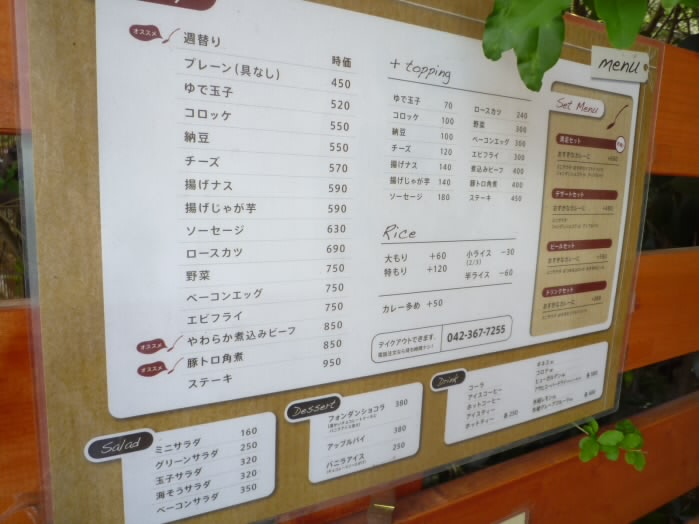 オススメ 週替り 時価
プレーン(具なし) 450
ゆで玉子 520
コロッケ 550
納豆 550
チーズ 570
揚げナス 590
揚げじゃが芋 590
ソーセージ 630
ロースカツ 690
野菜 750
ベーコンエッグ 750
エビフライ 750
オススメ やわらか煮込みビーフ 850
オススメ 豚トロ角煮 850
ステーキ 950
+ topping
ゆで玉子 70
コロッケ 100
納豆 100
チーズ 120
揚げナス 140
揚げじゃが芋 140
ソーセージ 180
ロースカツ 240
野菜 300
ベーコンエッグ 300
エビフライ 300
煮込みビーフ 400
豚トロ角煮 400
ステーキ 450
Rice
大もり +60
特もり +120
小ライス -30
(2/3)
半ライス -60
カレー多め +50
テイクアウトできます。
042-367-7255
menu
Set Menu
満足セット
お好きなカレーに
デザートセット
お好きなカレーに
ビールセット
お好きなカレーに
ドリンクセット
お好きなカレーに
Salad
ミニサラダ 160
グリーンサラダ 250
玉子サラダ 320
海そうサラダ 320
ベーコンサラダ 350
Dessert
フォンダンショコラ 380
アップルパイ 380
バニラアイス 250
Drink
コーラ
アイスコーヒー
ホットコーヒー
アイスティー
ホットティー 各250